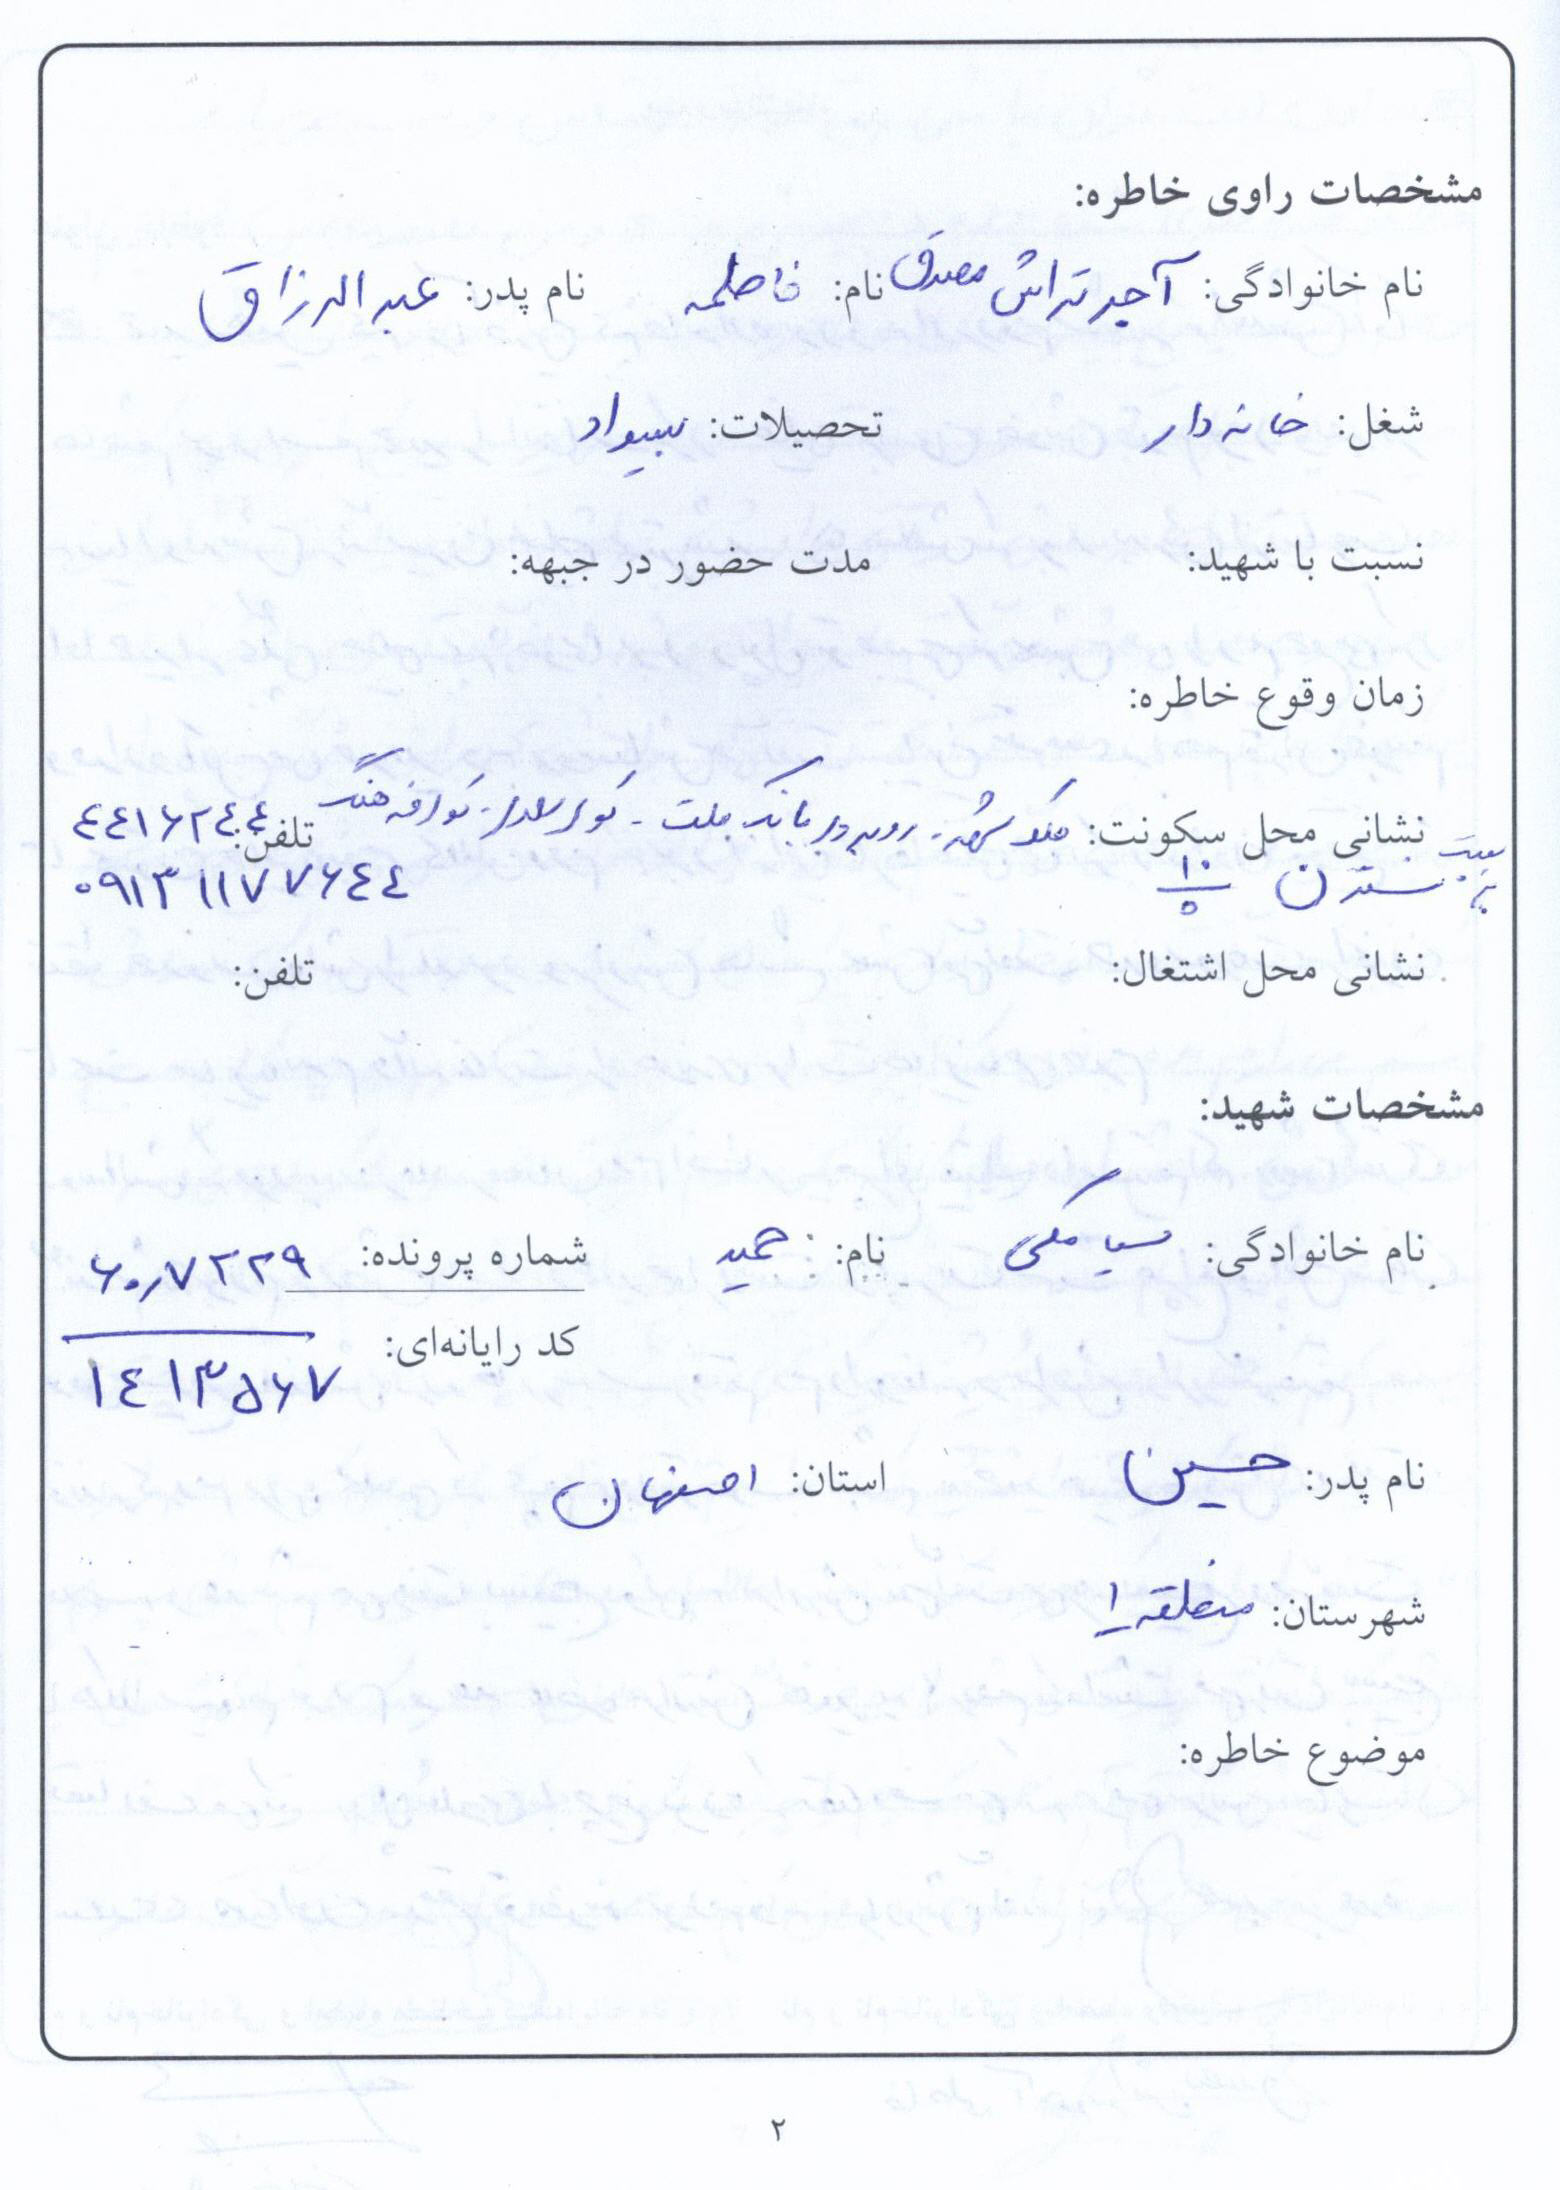 مشخصات راوی خاطره:
نام خانوادگی: آجرتراش مصدق نام: فاطمه نام پدر: عبدالرزاق
شغل: خانه دار تحصیلات: بیسواد
نسبت با شهید: مدت حضور در جبهه:
زمان وقوع خاطره:
نشانی محل سکونت: ملک شهر - روبروی بانک ملت - کوی لاله زار - کوی فرهنگ تلفن: ٤٤١۶٢٤٤
بن بست نسترن ۱۰/۵ ٠٩١٣١١٧٧۶٤٤
نشانی محل اشتغال: تلفن:
مشخصات شهید:
نام خانوادگی: سیاه ملکی نام: حمید شماره پرونده: ۶۰٫۷۲۲۹
کد رایانه‌ای: ١٤١٣۵۶٧
نام پدر: حسین استان: اصفهان
شهرستان: منطقه ۱
موضوع خاطره:
۲